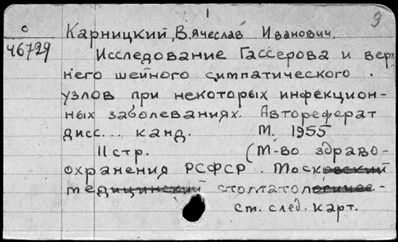 1
9
с
46729
Карницкий, Вячеслав Иванович.
Исследование Гассерова и верх
него шейного симпатического
узлов при некоторых инфекцион-
ных заболеваниях. Автореферат
дисс... канд. М. 1955
11 стр. (М-во здраво-
охранения РСФСР. Московский
медицинский стоматологичес-
см. след. карт.